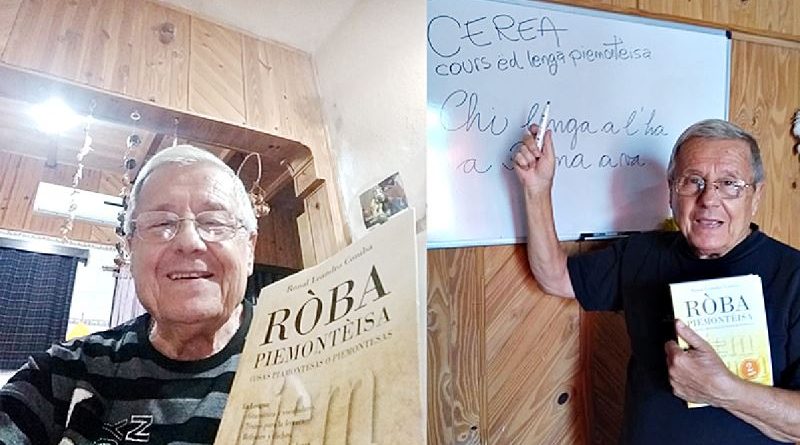 Ronal Leandro Comba
RÒBA
PIEMONTÈISA
COSAS PIAMONTESAS O PIEMONTESAS
CEREA
cours ëd lenga piemontèisa
Chi lenga a l'ha
a Roma a va
RÒBA
PIEMONTÈISA
2